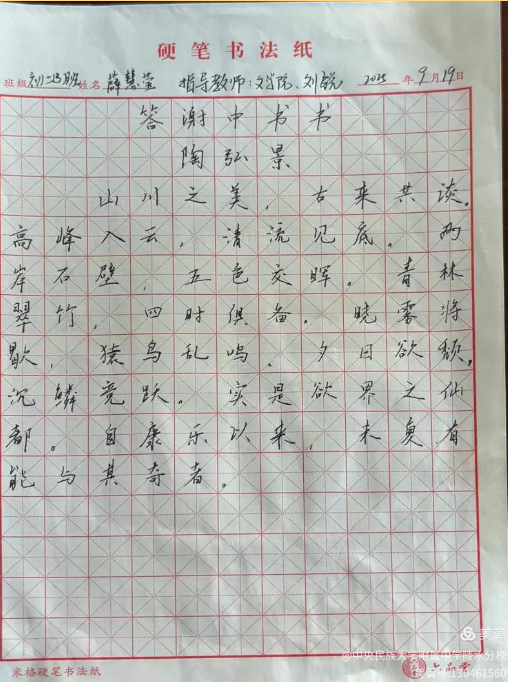 硬笔书法纸
班级 初二(3)班 姓名 薛慧莹 指导教师:刘锐 2025 年 9 月 19 日
答谢中书书
陶弘景
山川之美,古来共谈。
高峰入云,清流见底。两
岸石壁,五色交晖。青林
翠竹,四时俱备。晓雾将
歇,猿鸟乱鸣。夕日欲颓,
沉鳞竞跃。实是欲界之仙
都。自康乐以来,未复有
能与其奇者。
米格硬笔书法纸
六品堂
美篇
@中央民族大学附属中学陵水分校
136461560